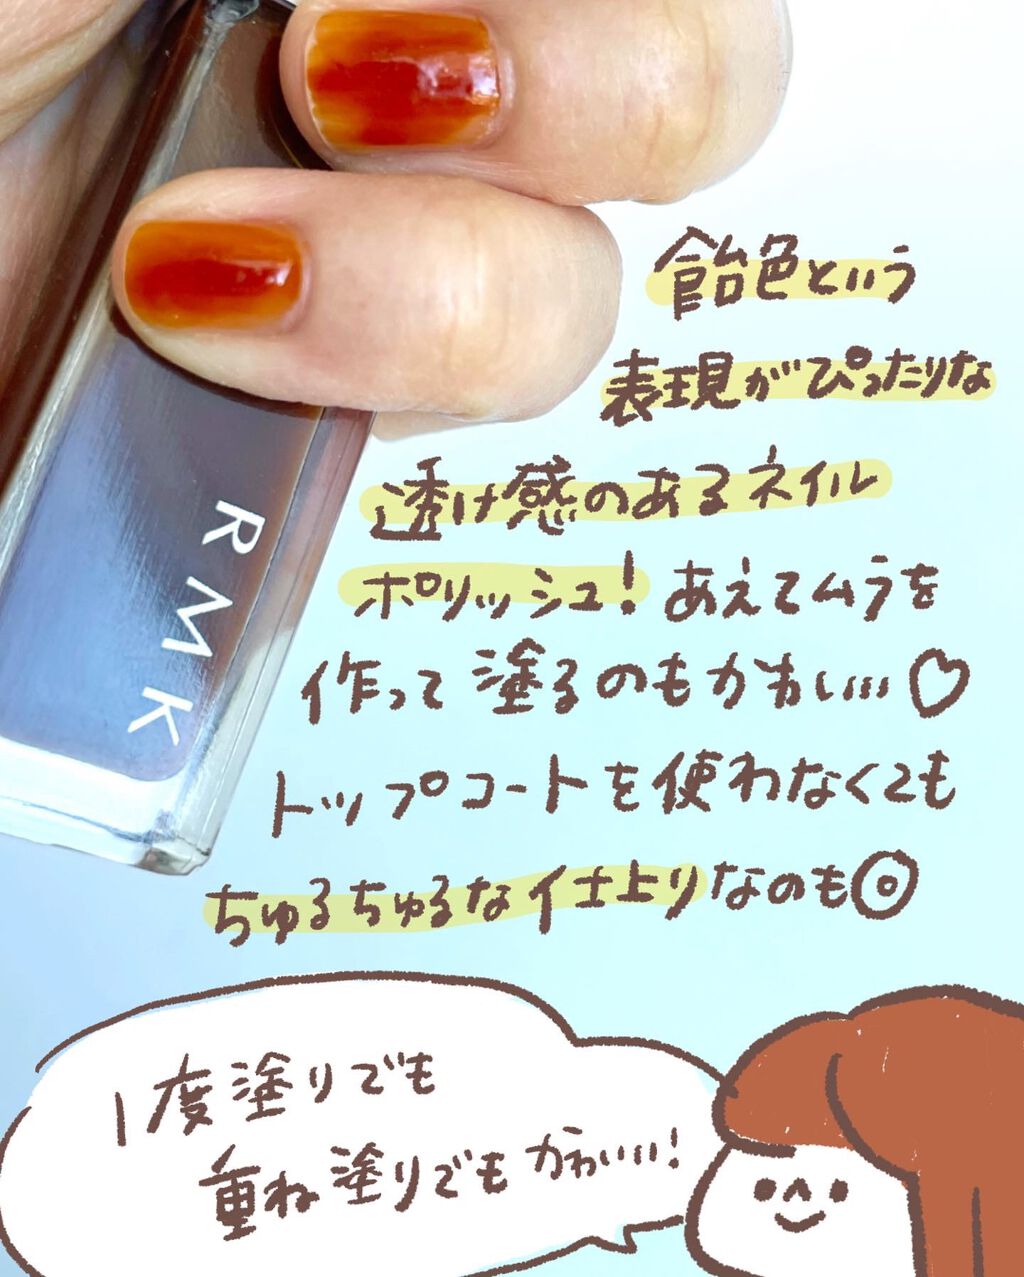 飴色という
表現がぴったりな
透け感のあるネイル
ポリッシュ！あえてムラを
作って塗るのもかわいい…♡
トップコートを使わなくても
ちゅるちゅるな仕上りなのも◎
RMK
1度塗りでも
重ね塗りでもかわいい!